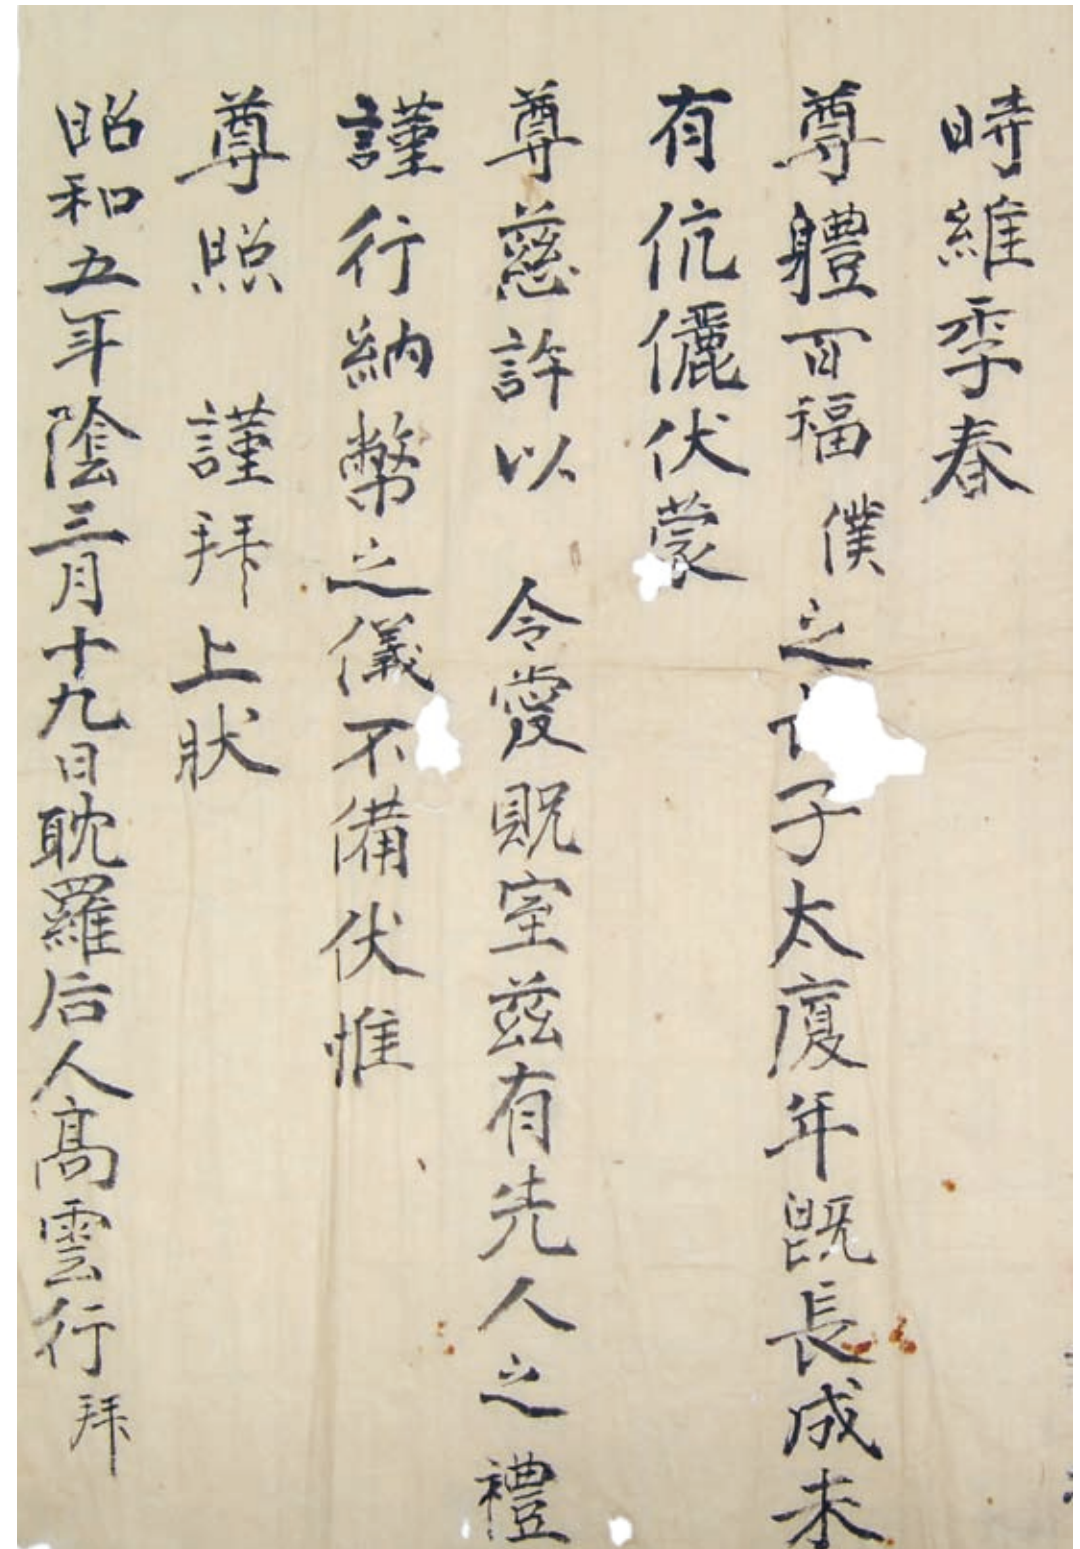 時維季春
尊體百福 僕之子太廈年旣長成未
有伉儷伏蒙
尊慈許以 令愛貺室玆有先人之禮
謹行納幣之儀不備伏惟
尊照 謹拜上狀
昭和五年陰三月十九日耽羅后人高雲行拜